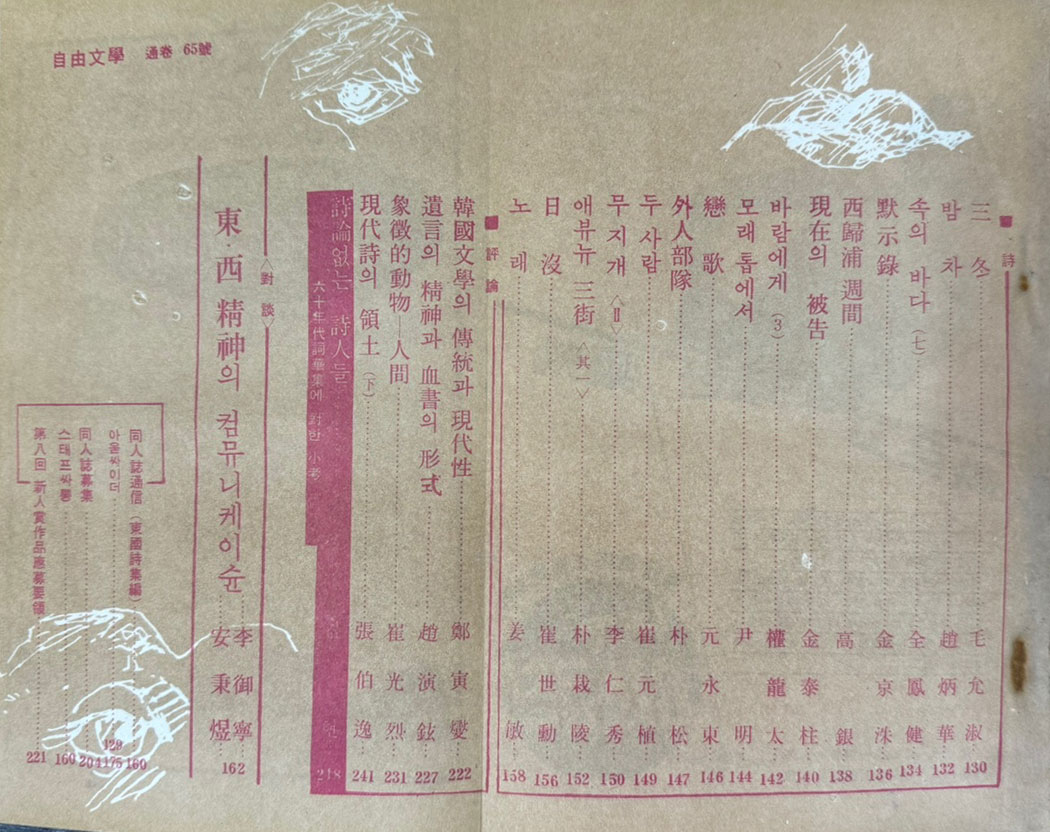 自由文學 通卷 65號
■ 詩
三冬 毛允淑 130
밤차 趙炳華 132
속의 바다 (七) 全鳳健 134
默示錄 金京洙 136
西歸浦 週間 高銀 138
現在의 被告 金泰柱 140
바람에게 (3) 權龍太 142
모래톱에서 尹明 144
戀歌 元永東 146
外人部隊 朴松 147
두 사람 崔元植 149
무지개 〈Ⅱ〉 李仁秀 150
애뷰뉴 三街 〈其一〉 朴栽陵 152
日沒 崔世勳 156
노래 姜敏 158
■ 評論
韓國文學의 傳統과 現代性 鄭寅燮 222
遺言의 精神과 血書의 形式 趙演鉉 227
象徵的動物―人間 崔光烈 231
現代詩의 領土 (下) 張伯逸 241
詩論없는 詩人들
六十年代詞華集에 對한 小考
218
〈對談〉
東·西精神의 컴뮤니케이슌 李御寧 安秉煜 162
同人誌通信 (東國詩集編) 160
아웃싸이더
同人誌募集 204
스태프싸롱 160
第八回 新人賞作品應募要領 221